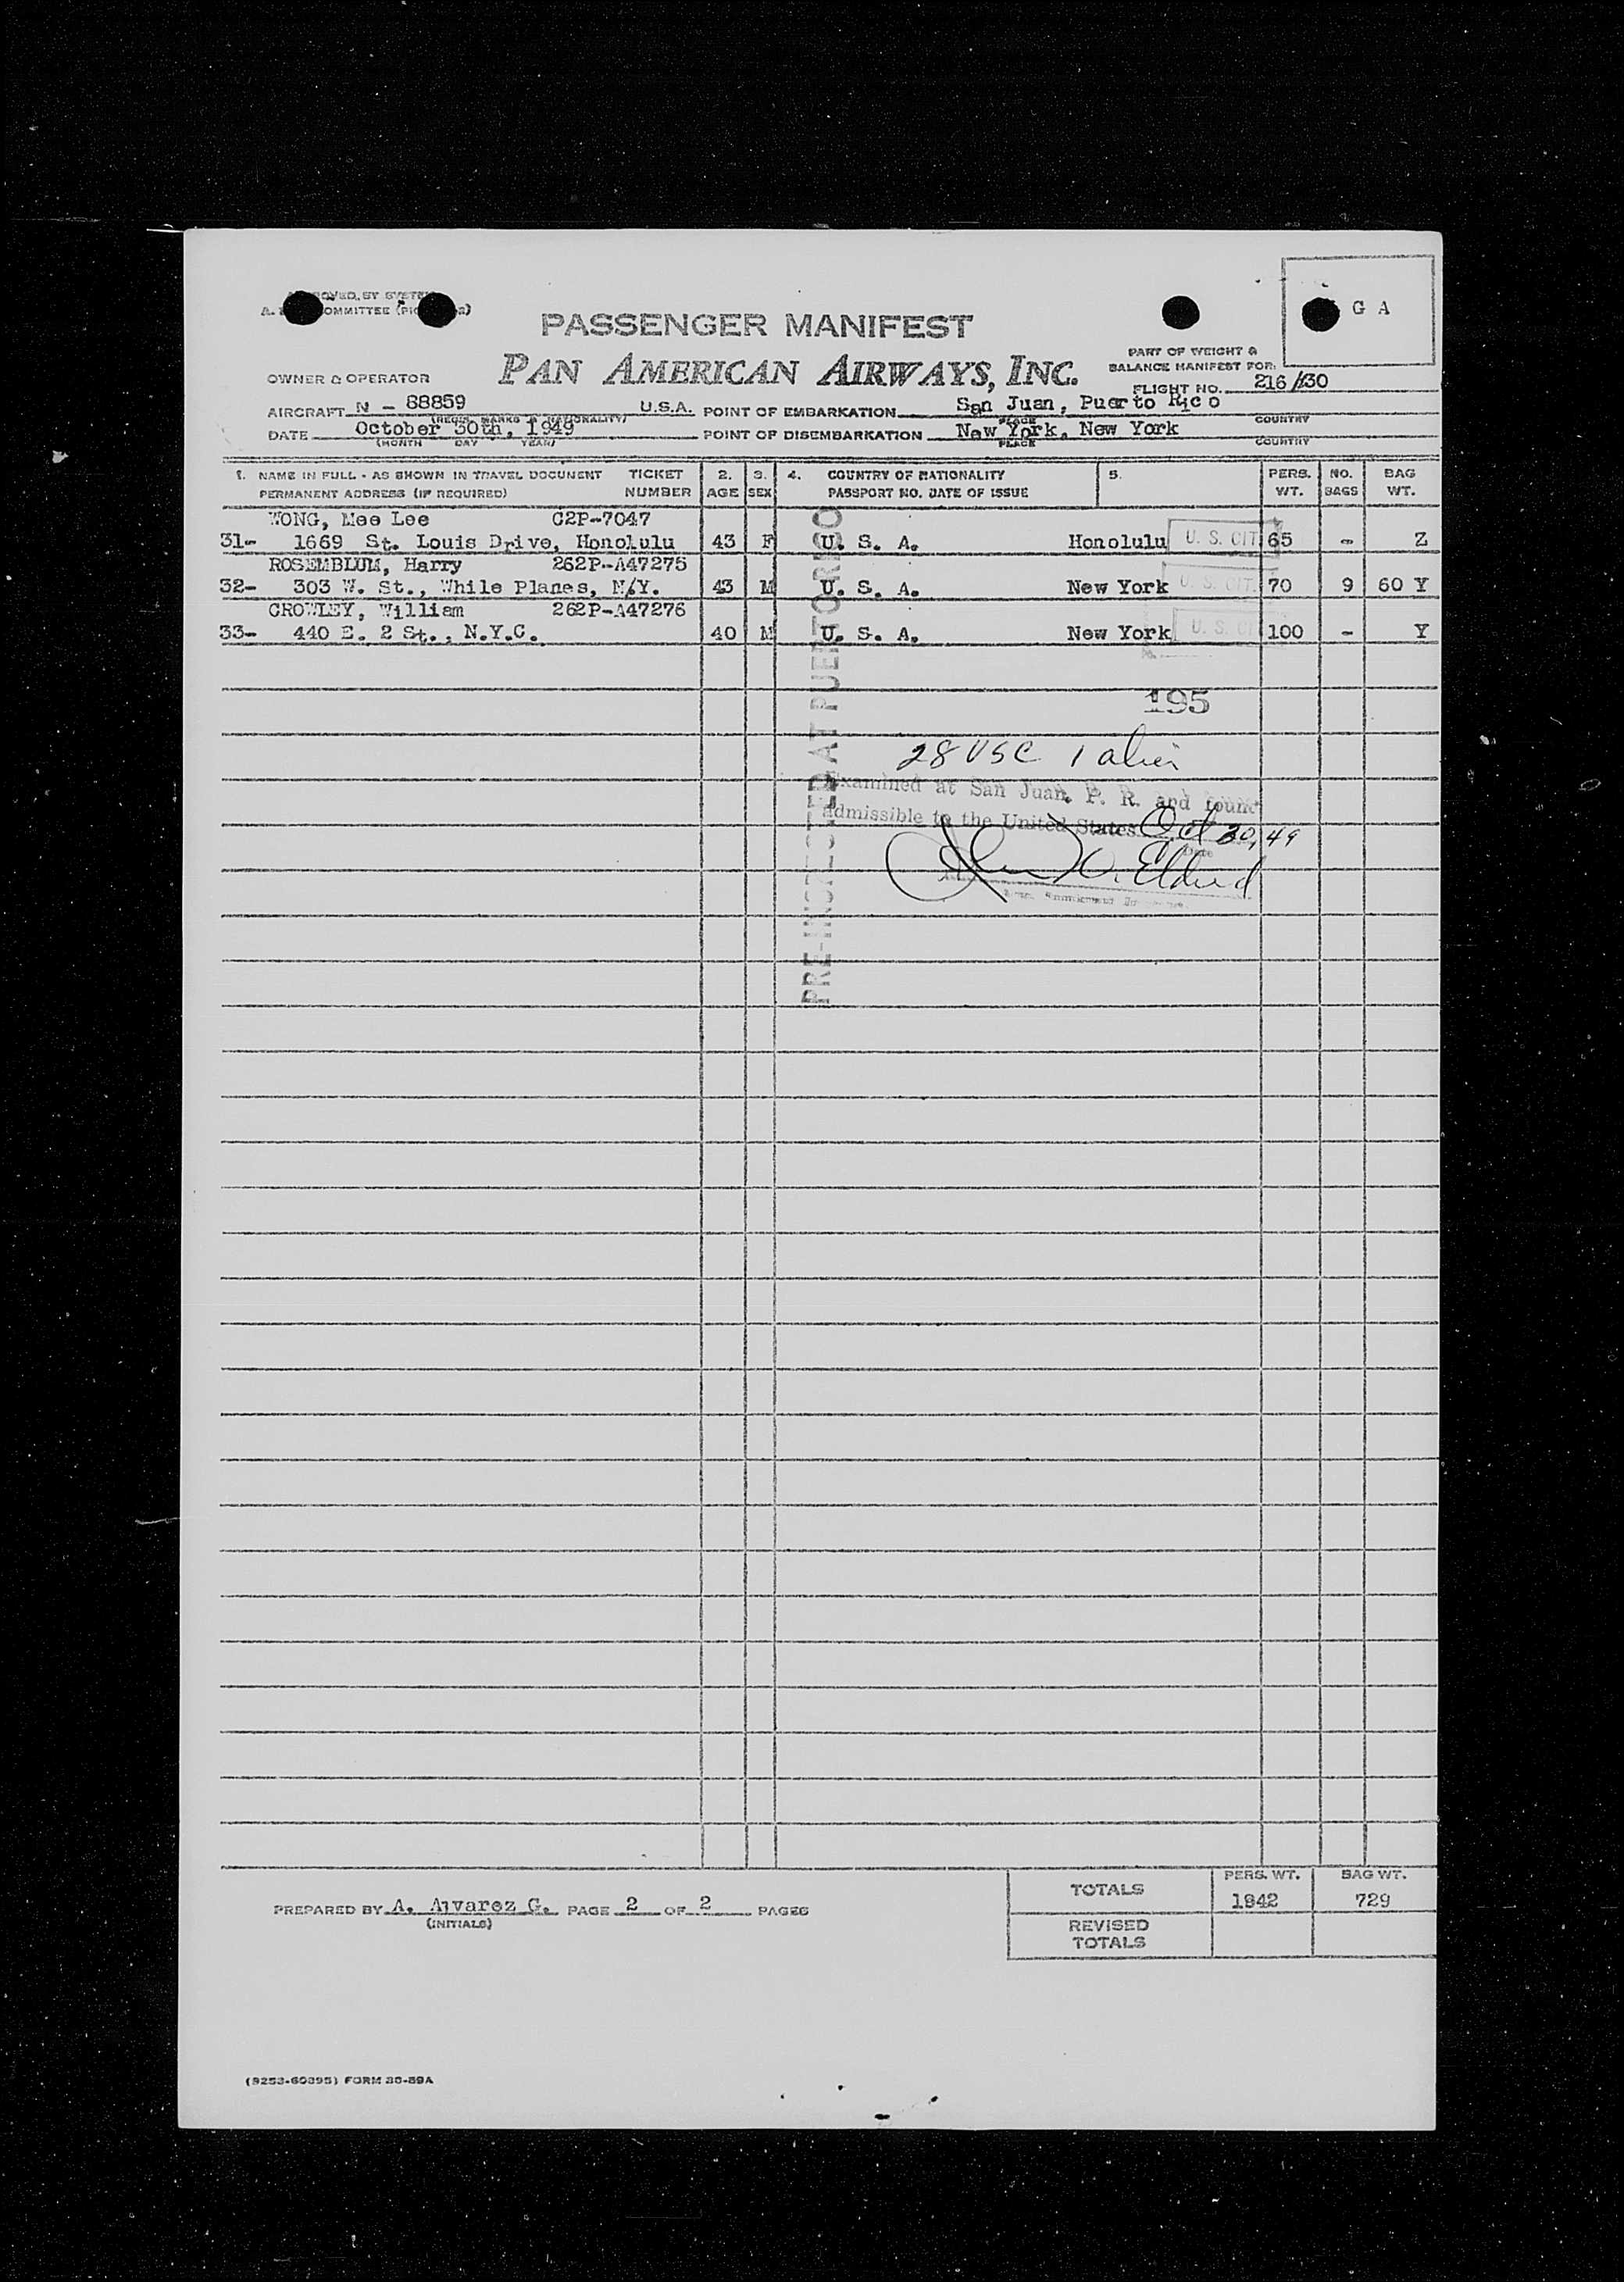 PASSENGER MANIFEST
PAN AMERICAN AIRWAYS, INC.
G A
PART OF WEIGHT &
BALANCE MANIFEST FOR:
FLIGHT NO. 216/30
OWNER & OPERATOR
AIRCRAFT N - 88859 U.S.A. POINT OF EMBARKATION San Juan, Puerto Rico
(REGIS. MARKS & NATIONALITY) PLACE COUNTRY
DATE October 30th, 1949 POINT OF DISEMBARKATION New York, New York
(MONTH DAY YEAR) PLACE COUNTRY
1. NAME IN FULL - AS SHOWN IN TRAVEL DOCUMENT TICKET 2. 3. 4. COUNTRY OF NATIONALITY 5. PERS. NO. BAG
PERMANENT ADDRESS (IF REQUIRED) NUMBER AGE SEX PASSPORT NO. DATE OF ISSUE WT. BAGS WT.
WONG, Mee Lee C2P-7047
31- 1669 St. Louis Drive, Honolulu 43 F U. S. A. Honolulu U. S. CIT 65 - Z
ROSEMBLUM, Harry 262P-A47275
32- 303 W. St., While Planes, N/Y. 43 M U. S. A. New York U. S. CIT. 70 9 60 Y
CROWLEY, William 262P-A47276
33- 440 E. 2 St., N.Y.C. 40 M U. S. A. New York U. S. CI 100 - Y
PRE-INSPECTED AT PUERTO RICO
195
28 USC 1 alien
Examined at San Juan, P. R. and found
admissible to the United States Oct 30, 49
Date
TOTALS PERS. WT. BAG WT.
1842 729
PREPARED BY A. Alvarez G. PAGE 2 OF 2 PAGES
(INITIALS)
REVISED
TOTALS
(9253-60895) FORM 30-89A